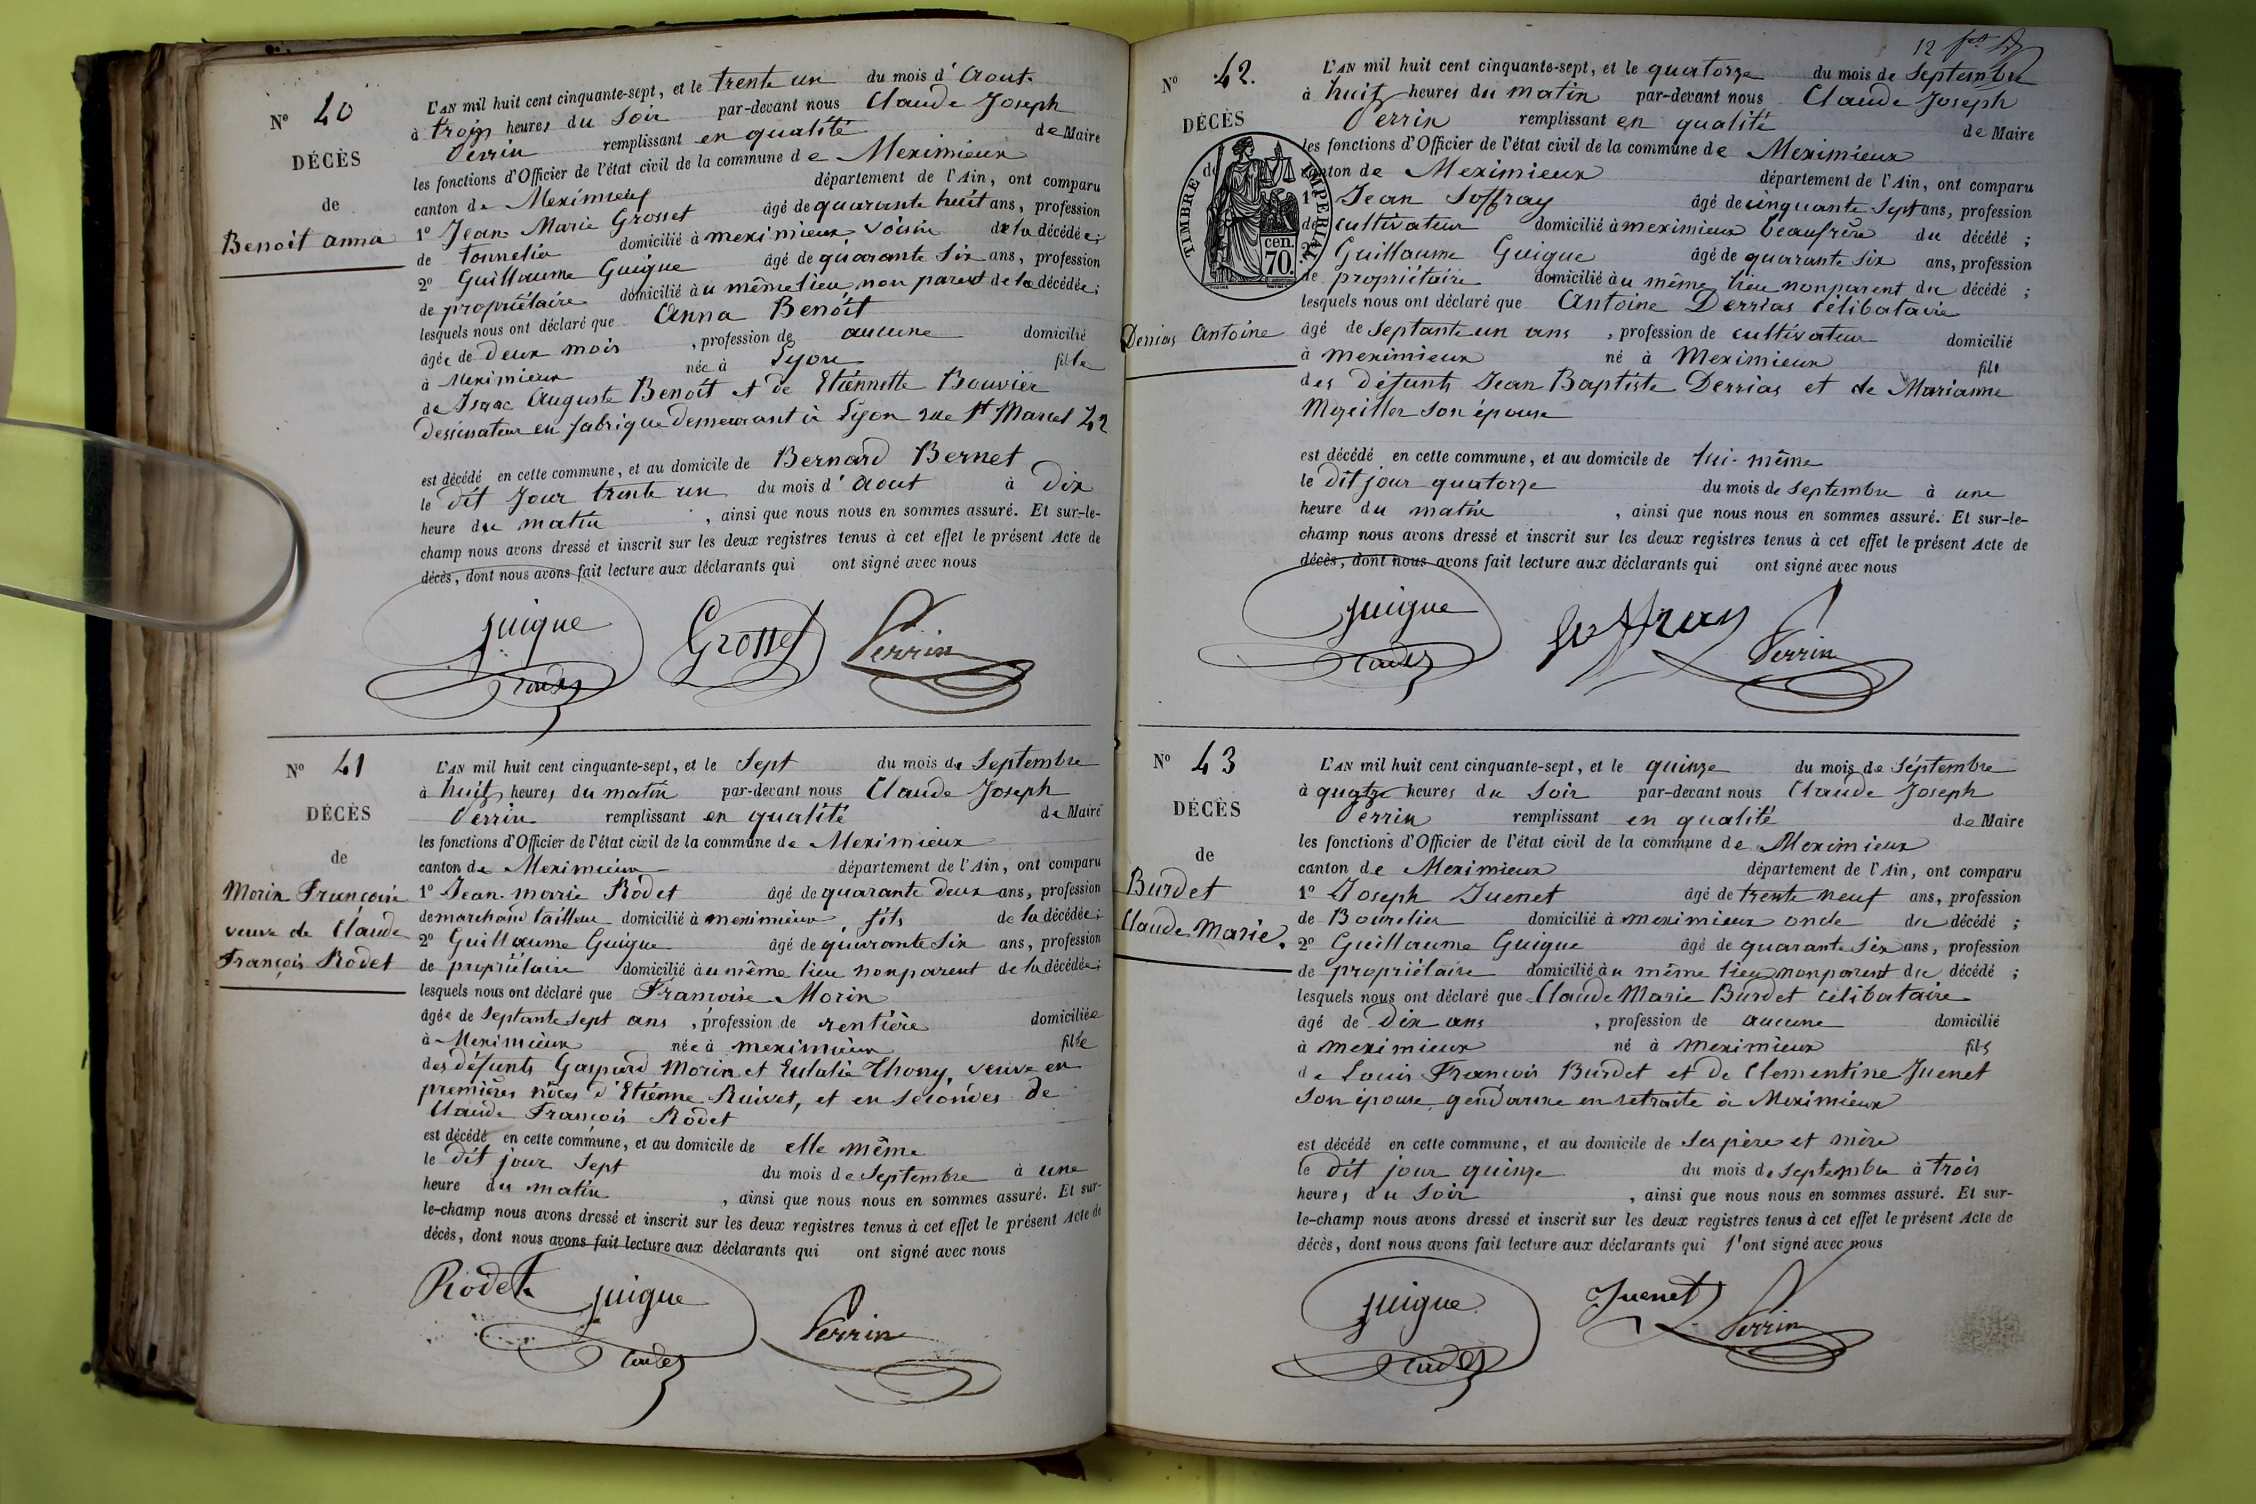 N° 40
DÉCÈS
de
Benoit anna
L'AN mil huit cent cinquante-sept, et le trente un du mois d'Aout
à trois heures du soir par-devant nous Claude Joseph
Perrin remplissant en qualité de Maire
les fonctions d'Officier de l'état civil de la commune de Meximieux
canton de Meximieux département de l'Ain, ont comparu
1° Jean Marie Grosset âgé de quarante huit ans, profession
de tonnelier domicilié à meximieux voisin de la décédée;
2° Guillaume Guigue âgé de quarante six ans, profession
de propriétaire domicilié au même lieu non parent de la décédée;
lesquels nous ont déclaré que Anna Benoit
âgée de deux mois, profession de aucune domicilié
à Meximieux née à Lyon fille
de Isaac Auguste Benoît et de Etiennette Bouvier
dessinateur en fabrique demeurant à Lyon rue St Marcel 42
est décédé en cette commune, et au domicile de Bernard Bernet
le dit jour trente un du mois d'Aout à dix
heure du matin, ainsi que nous nous en sommes assuré. Et sur-le-
champ nous avons dressé et inscrit sur les deux registres tenus à cet effet le présent Acte de
décès, dont nous avons fait lecture aux déclarants qui ont signé avec nous
guigue Grosset Perrin
N° 41
DÉCÈS
de
Morin Françoise
veuve de Claude
François Rodet
L'AN mil huit cent cinquante-sept, et le sept du mois de Septembre
à huit heures du matin par-devant nous Claude Joseph
Perrin remplissant en qualité de Maire
les fonctions d'Officier de l'état civil de la commune de Meximieux
canton de Meximieux département de l'Ain, ont comparu
1° Jean-marie Rodet âgé de quarante deux ans, profession
de marchand tailleur domicilié à meximieux, fils de la décédée;
2° Guillaume Guigue âgé de quarante six ans, profession
de propriétaire domicilié au même lieu non parent de la décédée;
lesquels nous ont déclaré que Françoise Morin
âgée de septante sept ans, profession de rentière domiciliée
à Meximieux née à meximieux fille
des défunts Gaspard Morin et Eulalie Thony, veuve en
premières nôces d'Etienne Ruivet, et en secondes de
Claude François Rodet
est décédé en cette commune, et au domicile de elle même
le dit jour sept du mois de septembre à une
heure du matin, ainsi que nous nous en sommes assuré. Et sur-
le-champ nous avons dressé et inscrit sur les deux registres tenus à cet effet le présent Acte de
décès, dont nous avons fait lecture aux déclarants qui ont signé avec nous
Rodet guigue Perrin
12
N° 42.
DÉCÈS
de
TIMBRE IMPÉRIAL
70 cen.
Derrias Antoine
L'AN mil huit cent cinquante-sept, et le quatorze du mois de Septembre
à huit heures du matin par-devant nous Claude Joseph
Perrin remplissant en qualité de Maire
les fonctions d'Officier de l'état civil de la commune de Meximieux
canton de Meximieux département de l'Ain, ont comparu
1° Jean Soffray âgé de cinquante sept ans, profession
de cultivateur domicilié à meximieux beaufrère du décédé;
2° Guillaume Guigue âgé de quarante six ans, profession
de propriétaire domicilié au même lieu non parent du décédé;
lesquels nous ont déclaré que Antoine Derrias célibataire
âgé de septante un ans, profession de cultivateur domicilié
à meximieux né à Meximieux fils
des défunts Jean Baptiste Derrias et de Marianne
son épouse
est décédé en cette commune, et au domicile de lui-même
le dit jour quatorze du mois de septembre à une
heure du matin, ainsi que nous nous en sommes assuré. Et sur-le-
champ nous avons dressé et inscrit sur les deux registres tenus à cet effet le présent Acte de
décès, dont nous avons fait lecture aux déclarants qui ont signé avec nous
guigue Soffray Perrin
N° 43
DÉCÈS
de
Burdet
Claude Marie.
L'AN mil huit cent cinquante-sept, et le quinze du mois de Septembre
à quatre heures du soir par-devant nous Claude Joseph
Perrin remplissant en qualité de Maire
les fonctions d'Officier de l'état civil de la commune de Meximieux
canton de Meximieux département de l'Ain, ont comparu
1° Joseph Juenet âgé de trente neuf ans, profession
de Bourelier domicilié à meximieux oncle du décédé;
2° Guillaume Guigue âgé de quarante six ans, profession
de propriétaire domicilié au même lieu non parent du décédé;
lesquels nous ont déclaré que Claude Marie Burdet célibataire
âgé de Dix ans, profession de aucune domicilié
à meximieux né à meximieux fils
de Louis François Burdet et de Clementine Juenet
son épouse, gendarme en retraite à Meximieux
est décédé en cette commune, et au domicile de ses père et mère
le dit jour quinze du mois de septembre à trois
heures du soir, ainsi que nous nous en sommes assuré. Et sur-
le-champ nous avons dressé et inscrit sur les deux registres tenus à cet effet le présent Acte de
décès, dont nous avons fait lecture aux déclarants qui l'ont signé avec nous
guigue Juenet Perrin